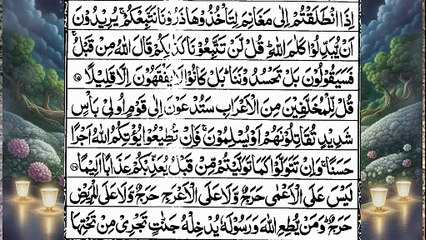 اِذَا انْطَلَقْتُمْ اِلٰى مَغَانِمَ لِتَاْخُذُوْهَا ذَرُوْنَا نَتَّبِعْكُمْ ۚ يُرِيْدُوْنَ
اَنْ يُّبَدِّلُوْا كَلٰمَ اللّٰهِ ؕ قُلْ لَّنْ تَتَّبِعُوْنَا كَذٰلِكُمْ قَالَ اللّٰهُ مِنْ قَبْلُ ۚ
فَسَيَقُوْلُوْنَ بَلْ تَحْسُدُوْنَنَا ؕ بَلْ كَانُوْا لَا يَفْقَهُوْنَ اِلَّا قَلِيْلًا ۝۱۵
قُلْ لِّلْمُخَلَّفِيْنَ مِنَ الْاَعْرَابِ سَتُدْعَوْنَ اِلٰى قَوْمٍ اُولِيْ بَاْسٍ
شَدِيْدٍ تُقَاتِلُوْنَهُمْ اَوْ يُسْلِمُوْنَ ۚ فَاِنْ تُطِيْعُوْا يُؤْتِكُمُ اللّٰهُ اَجْرًا
حَسَنًا ۚ وَاِنْ تَتَوَلَّوْا كَمَا تَوَلَّيْتُمْ مِّنْ قَبْلُ يُعَذِّبْكُمْ عَذَابًا اَلِيْمًا ۝۱۶
لَيْسَ عَلَى الْاَعْمٰى حَرَجٌ وَّلَا عَلَى الْاَعْرَجِ حَرَجٌ وَّلَا عَلَى الْمَرِيْضِ
حَرَجٌ ؕ وَمَنْ يُّطِعِ اللّٰهَ وَرَسُوْلَهٗ يُدْخِلْهُ جَنّٰتٍ تَجْرِيْ مِنْ تَحْتِهَا